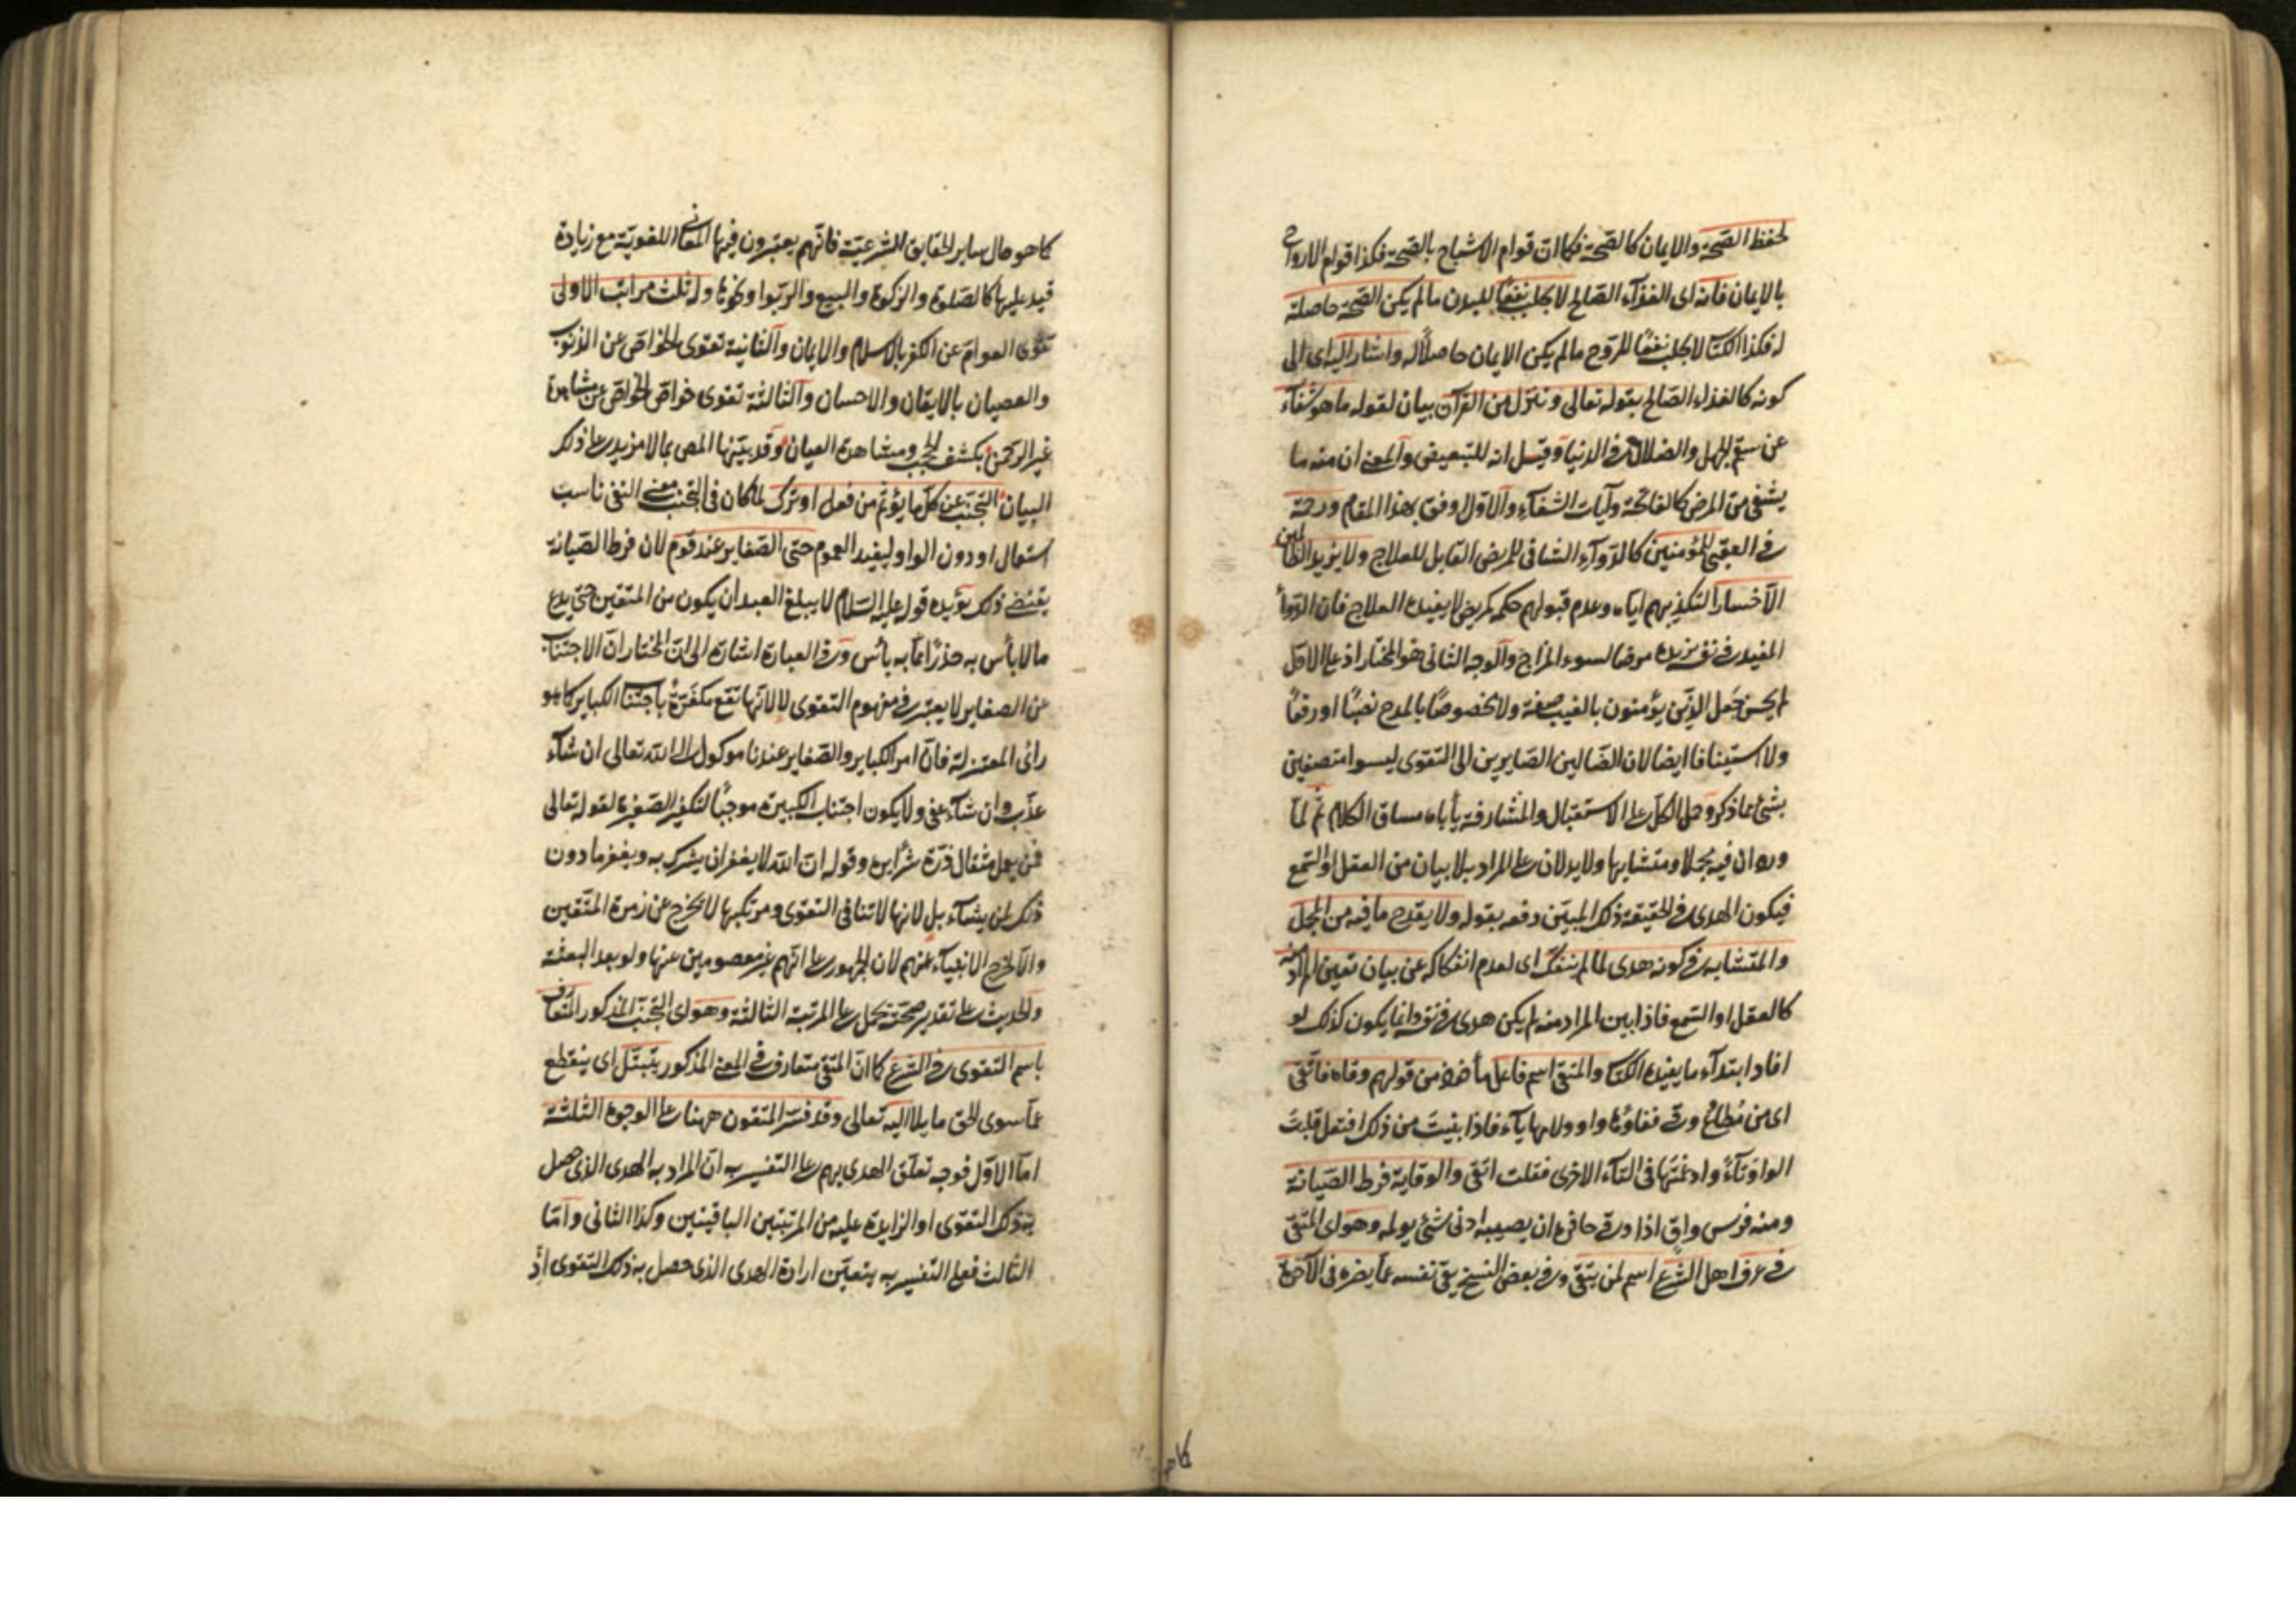 لحفظ الصحة والايمان كالصحة فكما ان قوام الاشباح بالصحة فكذا قوام الارواح
بالايمان فانه اى الغذآء الصالح لا يجلب نفعًا للبدن مالم يكن الصحة حاصلة
له فكذا الكتاب لا يجلب نفعًا للروح مالم يكن الايمان حاصلًا له واشار اليه اى الى
كونه كالغذاء الصالح بقوله تعالى وننزل من القرآن بيان لقوله ما هو شفآء
عن سقم الجهل والضلال فى الدنيا وقيل انه للتبعيض والمعنى ان منه ما
يشفى من المرض كالفاتحة وآيات الشفآء والاول اوفق بهذا المقام ورحمة
فى العقبى للمؤمنين كالدوآء الشافى للمرض القابل للعلاج ولا يزيد الظالمين
الا خسارا لتكذيبهم اياه وعدم قبولهم حكمه كمريض لا يفيده العلاج فان الدوآء
المفيد فى نفسه يزيده مرضا لسوء المزاج والوجه الثانى هو المختار اذ على الاول
لم يحسن جعل الذين يؤمنون بالغيب صفة ولا مخصوصًا بالمدح نصبًا او رفعًا
ولا استينافا ايضا لان الضالين الصايرين الى التقوى ليسوا متصفين
بشئ مما ذكر وحمل الكل على الاستقبال والمشارفة يأباه مساق الكلام ثم لما
ورد ان فيه مجملا ومتشابها ولا يدلان على المراد بلا بيان من العقل او السمع
فيكون الهدى فى الحقيقة ذلك المبين دفعه بقوله ولا يقدح ما فيه من المجمل
والمتشابه فى كونه هدى لما لم ينفك اى لعدم انفكاكه عن بيان تعين المراد منه
كالعقل او السمع فاذا بين المراد منه لم يكن هدى فى نفسه وانما يكون كذلك لو
افاد ابتدآء ما يفيده الكتاب والمتقى اسم فاعل مأخوذ من قولهم وقاه فاتقى
اى من مُطاع وقى ففاؤها واو ولامها يآء فاذا بنيت من ذلك افتعل قلبت
الواو تآءً وادغمتها فى التآء الاخرى فقلت اتقى والوقاية فرط الصيانة
ومنه فرس واقٍ اذا وقى حافره ان يصيبه ادنى شئ يولمه وهو اى المتقى
فى عرف اهل الشرع اسم لمن يتقى وفى بعض النسخ يقى نفسه عما يضره فى الآخرة
كما هو
كما هو حال ساير الحقايق الشرعية فانهم يعتبرون فيها المعانى اللغوية مع زيادة
قيد عليها كالصلوة والزكوة والبيع والربوا ونحوها وله ثلث مراتب الاولى
تقوى العوام عن الكفر بالاسلام والايمان والثانية تقوى الخواص عن الذنوب
والعصيان بالايقان والاحسان والثالثة تقوى خواص الخواص عن مشاهدة
غير الرحمن بكشف الحجب ومشاهدة العيان وقد بينها المص بما لا مزيد على ذلك
البيان التجنب عن كل ما يؤثم من فعل او ترك لما كان فى التجنب معنى النفى ناسب
استعمال او دون الواو ليفيد العموم حتى الصغاير عند قوم لان فرط الصيانة
يقتضى ذلك يؤيده قوله عليه السلام لا يبلغ العبد ان يكون من المتقين حتى يدع
مالا بأس به حذرًا عما به بأس وفى العبارة اشارة الى ان المختار ان الاجتناب
عن الصغاير لا يعتبر فى مفهوم التقوى لا لانها تقع مكفرة باجتناب الكباير كما هو
رائ المعتزلة فان امر الكباير والصغاير عندنا موكول الى الله تعالى ان شآء
عذب وان شآء عفى ولا يكون اجتناب الكبيرة موجبًا لتكفير الصغيرة لقوله تعالى
فمن يعمل مثقال ذرة شرًا يره وقوله ان الله لا يغفر ان يشرك به ويغفر ما دون
ذلك لمن يشآء بل لانها لا تنافى التقوى ومرتكبها لا يخرج عن زمرة المتقين
والا لخرج الانبيآء عنهم لان الجمهور على انهم غير معصومين عنها ولو بعد البعثة
والحديث على تقدير صحته يحمل على المرتبة الثالثة وهو اى التجنب المذكور المتعارف
باسم التقوى فى الشرع كما ان المتقى متعارف فى المعنى المذكور يتبتل اى ينقطع
عما سوى الحق مايلا اليه تعالى وقد فسر المتقون ههنا على الوجوه الثلثة
اما الاول فوجه تعلق الهدى بهم على التفسير به ان المراد به الهدى الذى حصل
بذلك التقوى او الزايدة عليه من المرتبتين الباقيتين وكذا الثانى واما
الثالث فعلى التفسير به يتعين ارادة الهدى الذى حصل به ذلك التقوى اذ